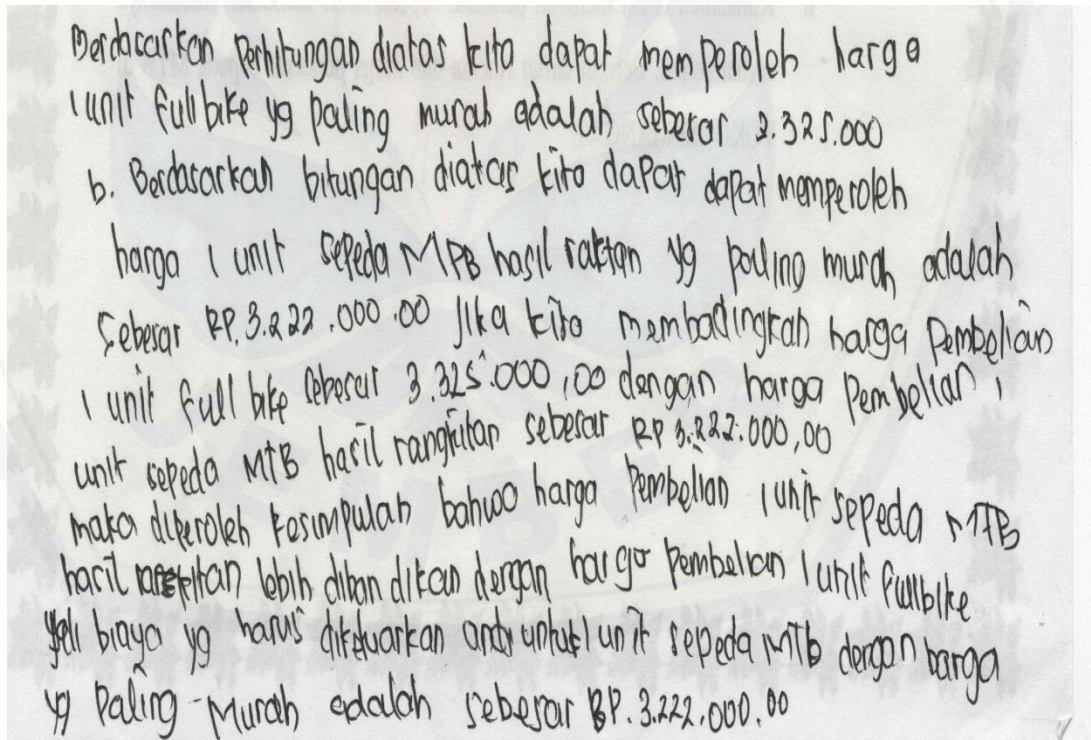 Berdasarkan Perhitungan diatas kita dapat memperoleh harga
1 unit full bike yg paling murah adalah sebesar 2.325.000
b. Berdasarkan hitungan diatas kita dapat dapat memperoleh
harga 1 unit sepeda MPB hasil raktan yg paling murah adalah
Sebesar RP. 3.222.000.00 Jika kita membadingkah harga Pembelian
1 unit full bike sebesar 3.325.000,00 dengan harga Pembelian 1
unit sepeda MTB hasil rangkitan sebesar RP 3.222.000,00
maka diperoleh kesimpulah bahwa harga Pembelian 1 unit sepeda MTB
hasil lebih diban dikan dengan harga Pembelian 1 unit fullbike
biaya yg harus dikeluarkan untuk 1 unit sepeda MTB dengan harga
yg Paling Murah adalah sebesar RP. 3.222.000.00
JEMBER